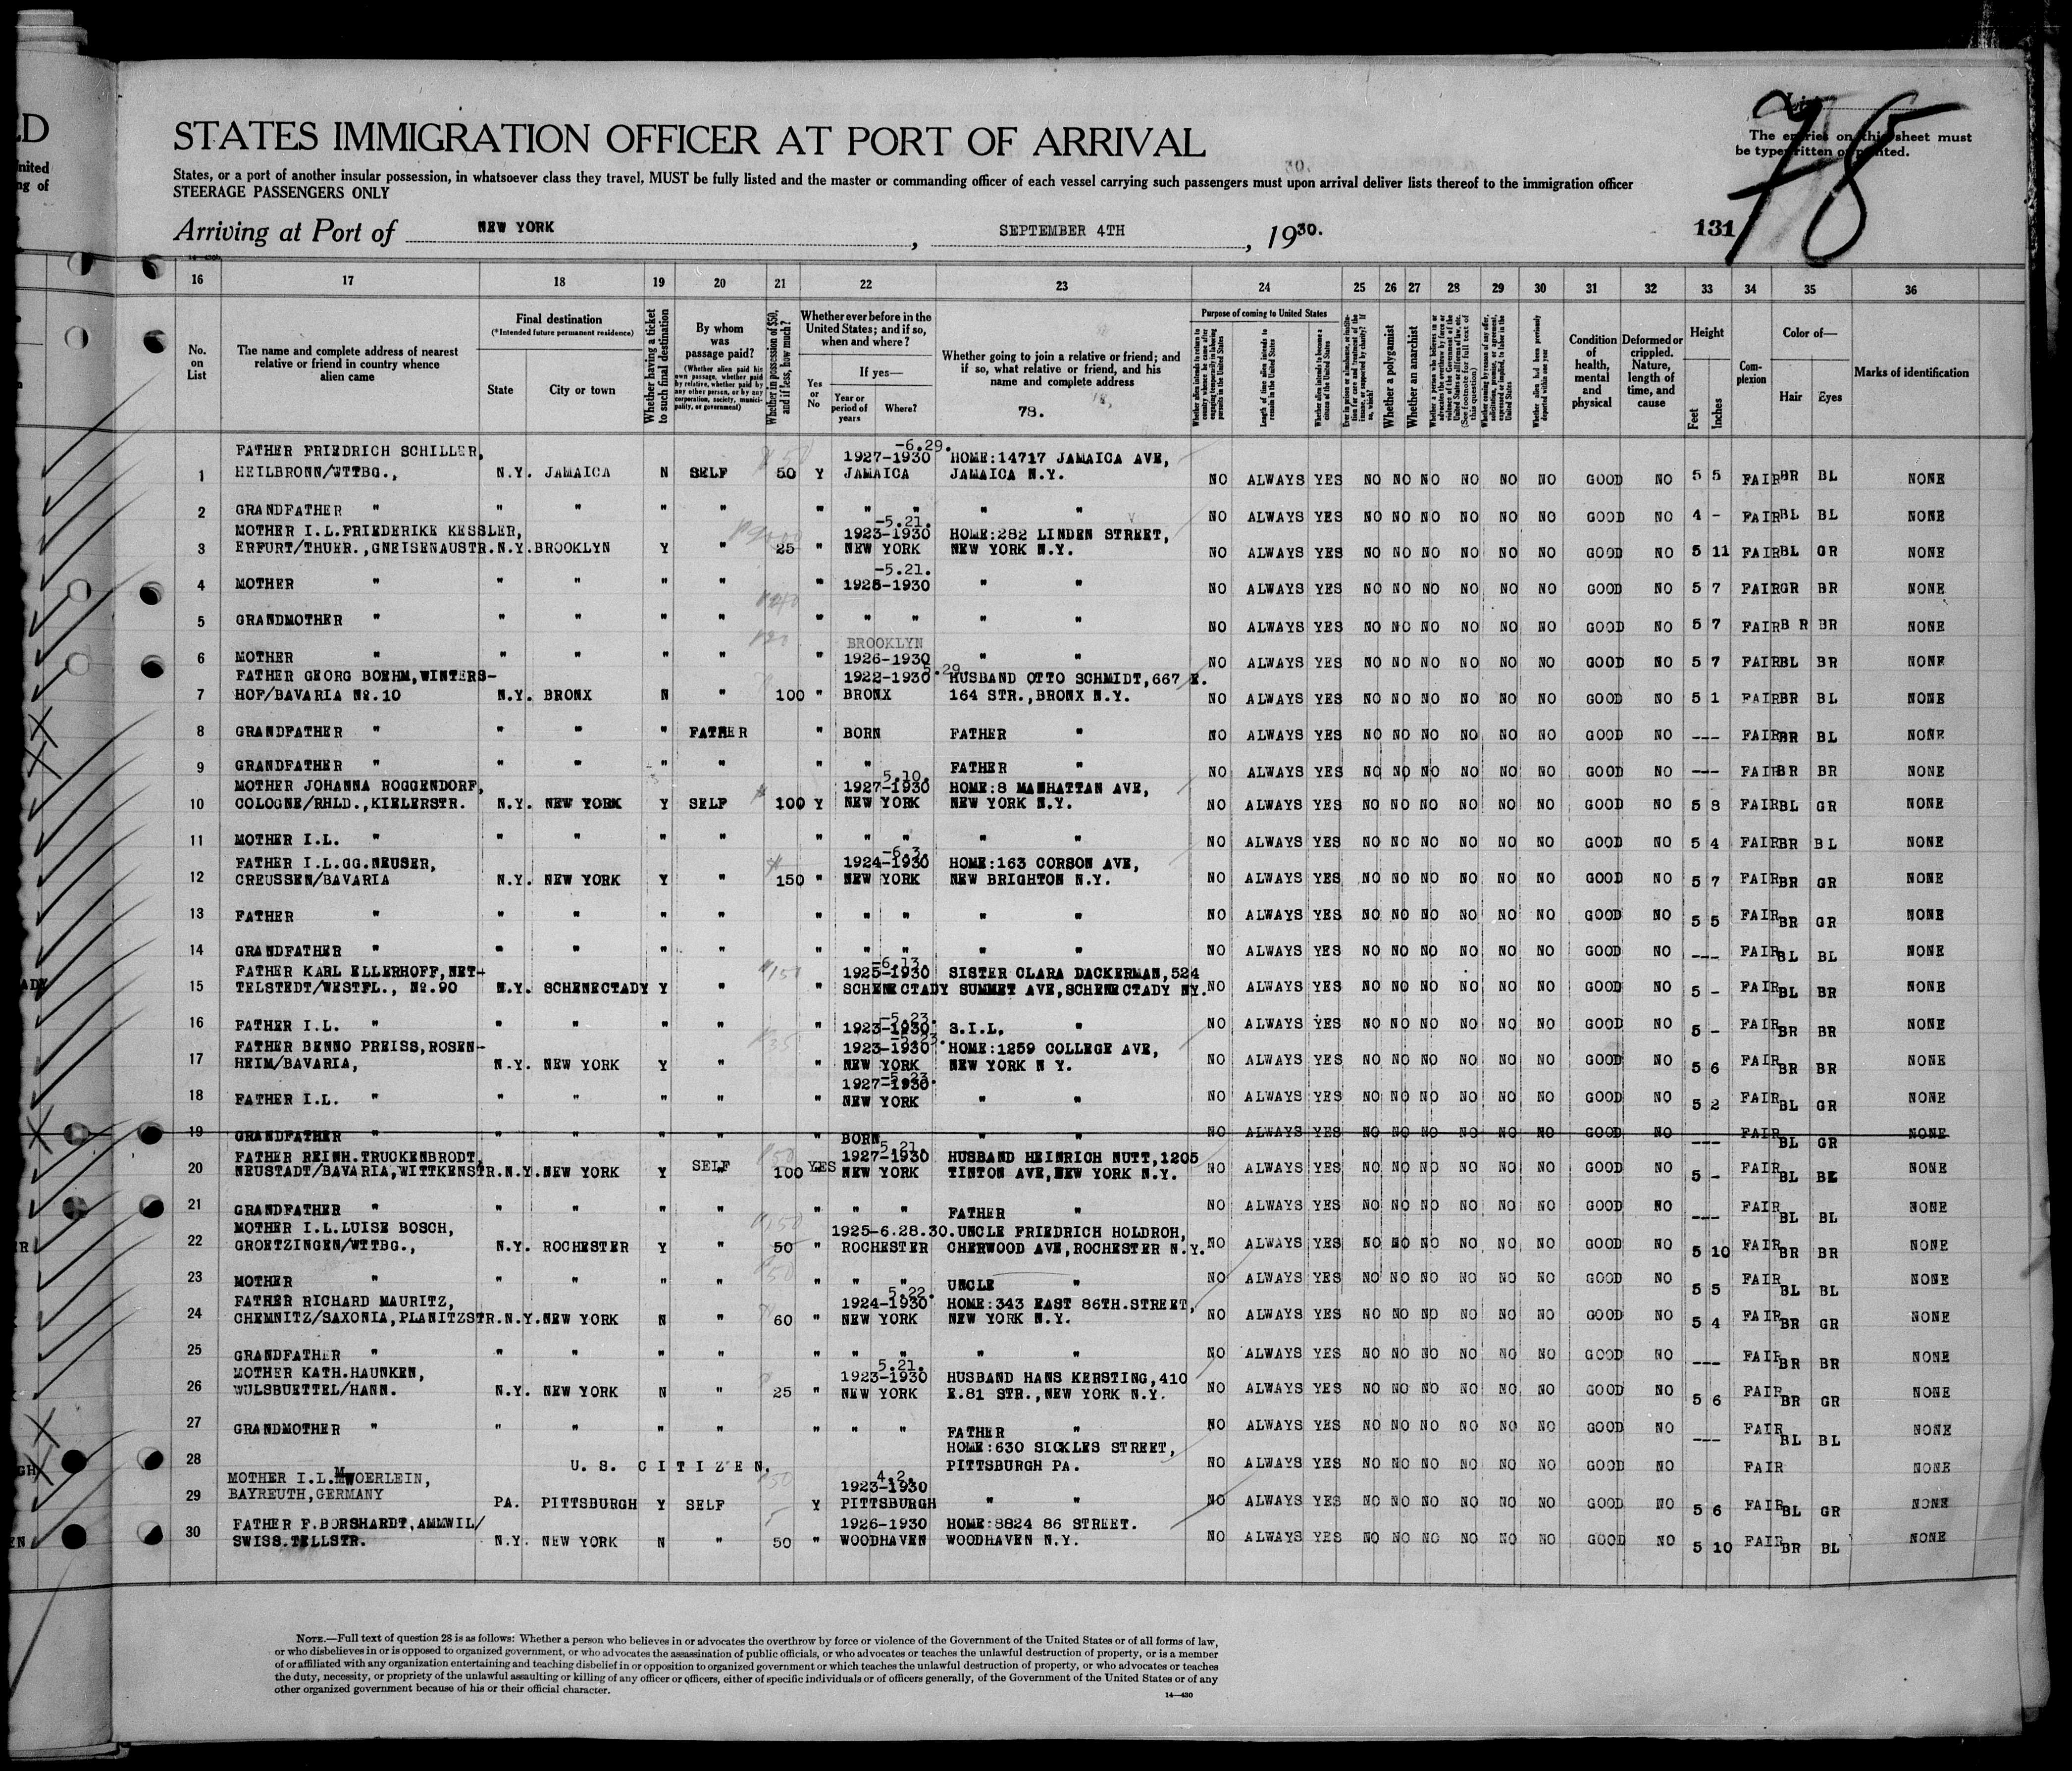 LD
United
ng of
STATES IMMIGRATION OFFICER AT PORT OF ARRIVAL
The entries on this sheet must
be typewritten or printed.
78
States, or a port of another insular possession, in whatsoever class they travel, MUST be fully listed and the master or commanding officer of each vessel carrying such passengers must upon arrival deliver lists thereof to the immigration officer
STEERAGE PASSENGERS ONLY
131
Arriving at Port of NEW YORK, SEPTEMBER 4TH, 1930.
16 17 18 19 20 21 22 23 24 25 26 27 28 29 30 31 32 33 34 35 36
No. on List
The name and complete address of nearest relative or friend in country whence alien came
Final destination
(*Intended future permanent residence)
State
City or town
Whether having a ticket to such final destination
By whom was passage paid?
(Whether alien paid his own passage, whether paid by relative, whether paid by any other person, or by any corporation, society, municipality, or government)
Whether in possession of $50, and if less, how much?
Whether ever before in the United States; and if so, when and where?
Yes or No
If yes—
Year or period of years
Where?
Whether going to join a relative or friend; and if so, what relative or friend, and his name and complete address
78.
Purpose of coming to United States
Length of time alien intends to remain in the United States
Whether alien intends to become a citizen of the United States
Whether a polygamist
Whether an anarchist
Condition of health, mental and physical
Deformed or crippled. Nature, length of time, and cause
Height
Feet
Inches
Complexion
Color of—
Hair
Eyes
Marks of identification
FATHER FRIEDRICH SCHILLER, 1927-1930 -6.29. HOME:14717 JAMAICA AVE,
1 HEILBRONN/WTTBG., N.Y. JAMAICA N SELF 50 Y JAMAICA JAMAICA N.Y. NO ALWAYS YES NO NO NO NO NO NO GOOD NO 5 5 FAIR BR BL NONE
2 GRANDFATHER " " " " " " " " " " NO ALWAYS YES NO NO NO NO NO NO GOOD NO 4 - FAIR BL BL NONE
MOTHER I.L.FRIEDERIKE KESSLER, -5.21. 1923-1930 HOME:282 LINDEN STREET,
3 ERFURT/THUER.,GNEISENAUSTR. N.Y. BROOKLYN Y " 25 " NEW YORK NEW YORK N.Y. NO ALWAYS YES NO NO NO NO NO NO GOOD NO 5 11 FAIR BL GR NONE
4 MOTHER " " " " " " -5.21. 1928-1930 " " NO ALWAYS YES NO NO NO NO NO NO GOOD NO 5 7 FAIR GR BR NONE
5 GRANDMOTHER " " " " " " " " " " NO ALWAYS YES NO NO NO NO NO NO GOOD NO 5 7 FAIR B R BR NONE
BROOKLYN
6 MOTHER " " " " " " 1926-1930 " " NO ALWAYS YES NO NO NO NO NO NO GOOD NO 5 7 FAIR BL BR NONE
FATHER GEORG BOEHM,WINTERS- 1922-1930 5.29. HUSBAND OTTO SCHMIDT,667 E.
7 HOF/BAVARIA No.10 N.Y. BRONX N " 100 " BRONX 164 STR.,BRONX N.Y. NO ALWAYS YES NO NO NO NO NO NO GOOD NO 5 1 FAIR BR BL NONE
8 GRANDFATHER " " " " FATHER " BORN FATHER " NO ALWAYS YES NO NO NO NO NO NO GOOD NO --- FAIR BR BL NONE
9 GRANDFATHER " " " " " " " FATHER " NO ALWAYS YES NO NO NO NO NO NO GOOD NO --- FAIR BR BR NONE
MOTHER JOHANNA ROGGENDORF, 5.10. 1927-1930 HOME:8 MANHATTAN AVE,
10 COLOGNE/RHLD.,KIELERSTR. N.Y. NEW YORK Y SELF 100 Y NEW YORK NEW YORK N.Y. NO ALWAYS YES NO NO NO NO NO NO GOOD NO 5 8 FAIR BL GR NONE
11 MOTHER I.L. " " " " " " " " " " NO ALWAYS YES NO NO NO NO NO NO GOOD NO 5 4 FAIR BR BL NONE
FATHER I.L.GG.NEUSER, -6.3. 1924-1930 HOME:163 CORSON AVE,
12 CREUSSEN/BAVARIA N.Y. NEW YORK Y " 150 " NEW YORK NEW BRIGHTON N.Y. NO ALWAYS YES NO NO NO NO NO NO GOOD NO 5 7 FAIR BR GR NONE
13 FATHER " " " " " " " " " " NO ALWAYS YES NO NO NO NO NO NO GOOD NO 5 5 FAIR BR GR NONE
14 GRANDFATHER " " " " " " " " " " NO ALWAYS YES NO NO NO NO NO NO GOOD NO --- FAIR BL BL NONE
FATHER KARL ELLERHOFF,NET- -6.13. 1925-1930 SISTER CLARA DACKERMAN,524
15 TELSTEDT/WESTFL., No.90 N.Y. SCHENECTADY Y " " SCHENECTADY SUMMET AVE,SCHENECTADY NY. NO ALWAYS YES NO NO NO NO NO NO GOOD NO 5 - FAIR BL BR NONE
16 FATHER I.L. " " " " " " -5.23. 1923-1930 S.I.L. " NO ALWAYS YES NO NO NO NO NO NO GOOD NO 5 - FAIR BR BR NONE
FATHER BENNO PREISS,ROSEN- -5.23. 1923-1930 HOME:1259 COLLEGE AVE,
17 HEIM/BAVARIA, N.Y. NEW YORK Y " " NEW YORK NEW YORK N Y. NO ALWAYS YES NO NO NO NO NO NO GOOD NO 5 6 FAIR BR BR NONE
-5.23. 1927-1930
18 FATHER I.L. " " " " " " NEW YORK " " NO ALWAYS YES NO NO NO NO NO NO GOOD NO 5 2 FAIR BL GR NONE
19 GRANDFATHER " " " " " " BORN " " NO ALWAYS YES NO NO NO NO NO NO GOOD NO --- FAIR BL GR NONE
FATHER REINH.TRUCKENBRODT, 5.21. 1927-1930 HUSBAND HEINRICH NUTT,1205
20 NEUSTADT/BAVARIA,WITTKENSTR. N.Y. NEW YORK Y SELF 100 YES NEW YORK TINTON AVE,NEW YORK N.Y. NO ALWAYS YES NO NO NO NO NO NO GOOD NO 5 - FAIR BL BL NONE
21 GRANDFATHER " " " " " " " " FATHER " NO ALWAYS YES NO NO NO NO NO NO GOOD NO --- FAIR BL BL NONE
MOTHER I.L.LUISE BOSCH, 1925-6.28.30. UNCLE FRIEDRICH HOLDROH,
22 GROETZINGEN/WTTBG., N.Y. ROCHESTER Y " 50 " ROCHESTER CHERWOOD AVE,ROCHESTER N.Y. NO ALWAYS YES NO NO NO NO NO NO GOOD NO 5 10 FAIR BR BR NONE
23 MOTHER " " " " " " " " UNCLE " NO ALWAYS YES NO NO NO NO NO NO GOOD NO 5 5 FAIR BL BL NONE
FATHER RICHARD MAURITZ, 5.22. 1924-1930 HOME:343 EAST 86TH.STREET,
24 CHEMNITZ/SAXONIA,PLANITZSTR. N.Y. NEW YORK N " 60 " NEW YORK NEW YORK N.Y. NO ALWAYS YES NO NO NO NO NO NO GOOD NO 5 4 FAIR BR GR NONE
25 GRANDFATHER " " " " " " " " " " NO ALWAYS YES NO NO NO NO NO NO GOOD NO --- FAIR BR BR NONE
MOTHER KATH.HAUNKEN, 5.21. 1923-1930 HUSBAND HANS KERSTING,410
26 WULSBUETTEL/HANN. N.Y. NEW YORK N " 25 " NEW YORK E.81 STR.,NEW YORK N.Y. NO ALWAYS YES NO NO NO NO NO NO GOOD NO 5 6 FAIR BR GR NONE
27 GRANDMOTHER " " " " " " " " FATHER " NO ALWAYS YES NO NO NO NO NO NO GOOD NO --- FAIR BL BL NONE
HOME:630 SICKLES STREET,
28 U. S. CITIZEN. PITTSBURGH PA. NO ALWAYS YES NO NO NO NO NO NO GOOD NO FAIR NONE
MOTHER I.L.MWOERLEIN, 4.2. 1923-1930
29 BAYREUTH,GERMANY PA. PITTSBURGH Y SELF Y PITTSBURGH " " NO ALWAYS YES NO NO NO NO NO NO GOOD NO 5 6 FAIR BL GR NONE
FATHER F.BORSHARDT,AMMWIL/ 1926-1930 HOME:8824 86 STREET.
30 SWISS.TELLSTR. N.Y. NEW YORK N " 50 " WOODHAVEN WOODHAVEN N.Y. NO ALWAYS YES NO NO NO NO NO NO GOOD NO 5 10 FAIR BR BL NONE
NOTE.—Full text of question 28 is as follows: Whether a person who believes in or advocates the overthrow by force or violence of the Government of the United States or of all forms of law,
or who disbelieves in or is opposed to organized government, or who advocates the assassination of public officials, or who advocates or teaches the unlawful destruction of property, or is a member
of or affiliated with any organization entertaining and teaching disbelief in or opposition to organized government or which teaches the unlawful destruction of property, or who advocates or teaches
the duty, necessity, or propriety of the unlawful assaulting or killing of any officer or officers, either of specific individuals or of officers generally, of the Government of the United States or of any
other organized government because of his or their official character.
14—430